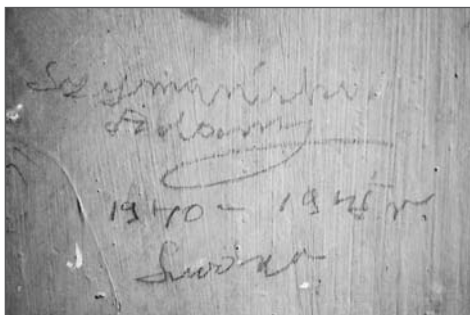 Szymański
Adam
1940 - 1945 r.